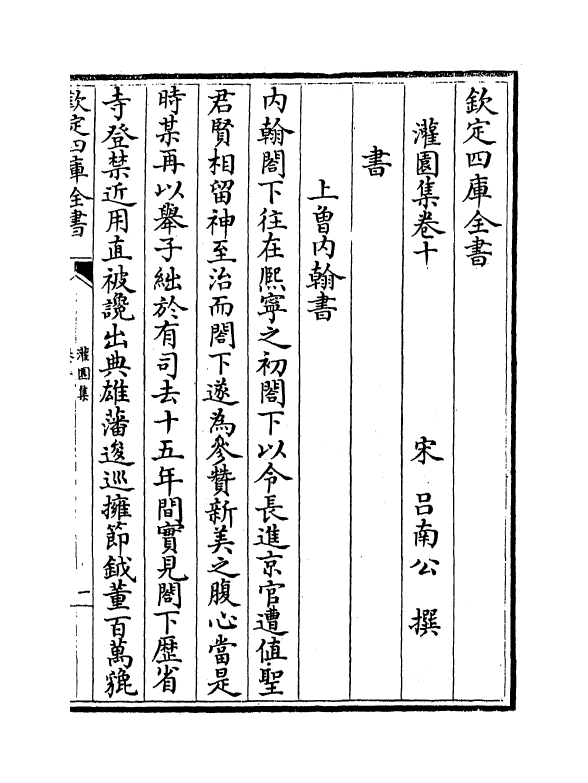 欽定四庫全書
灌園集卷十
宋 呂南公 撰
書
上曾内翰書
内翰閤下往在熈寧之初閤下以令長進京官遭值聖
君賢相留神至治而閤下遂為參贊新美之腹心當是
時某再以舉子絀於有司去十五年間實見閤下歴省
寺登禁近用直被讒出典雄藩逡巡擁節鉞董百萬貔
欽定四庫全書
灌園集